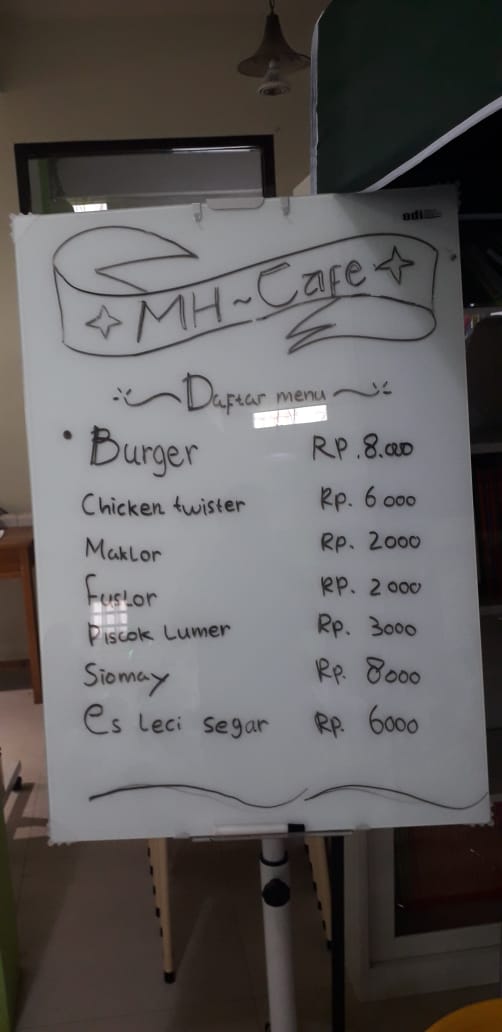 odi
MH~Cafe
Daftar menu
Burger RP.8.000
Chicken twister Rp. 6000
Maklor Rp. 2000
Fuslor RP. 2000
Piscok Lumer Rp. 3000
Siomay Rp. 8000
es leci segar Rp. 6000